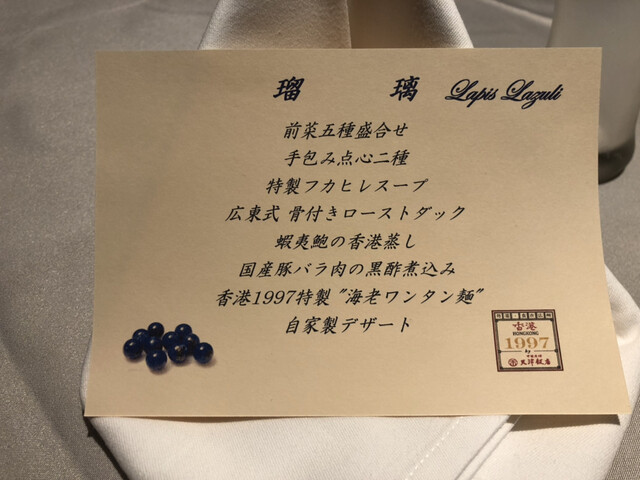 瑠 璃 Lapis Lazuli
前菜五種盛合せ
手包み点心二種
特製フカヒレスープ
広東式 骨付きローストダック
蝦夷鮑の香港蒸し
国産豚バラ肉の黒酢煮込み
香港1997特製 "海老ワンタン麺"
自家製デザート
香港
HONGKONG
1997
by
天津飯店